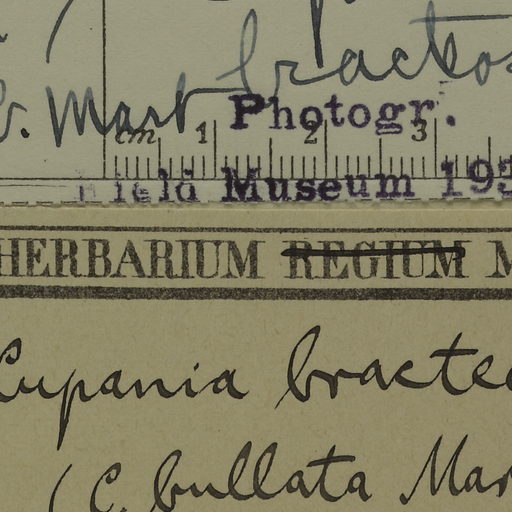 bracteos
v. Mart
Photogr.
cm 1 2 3
Field Museum 193
HERBARIUM REGIUM M
Cupania bracte
(C. bullata Mar